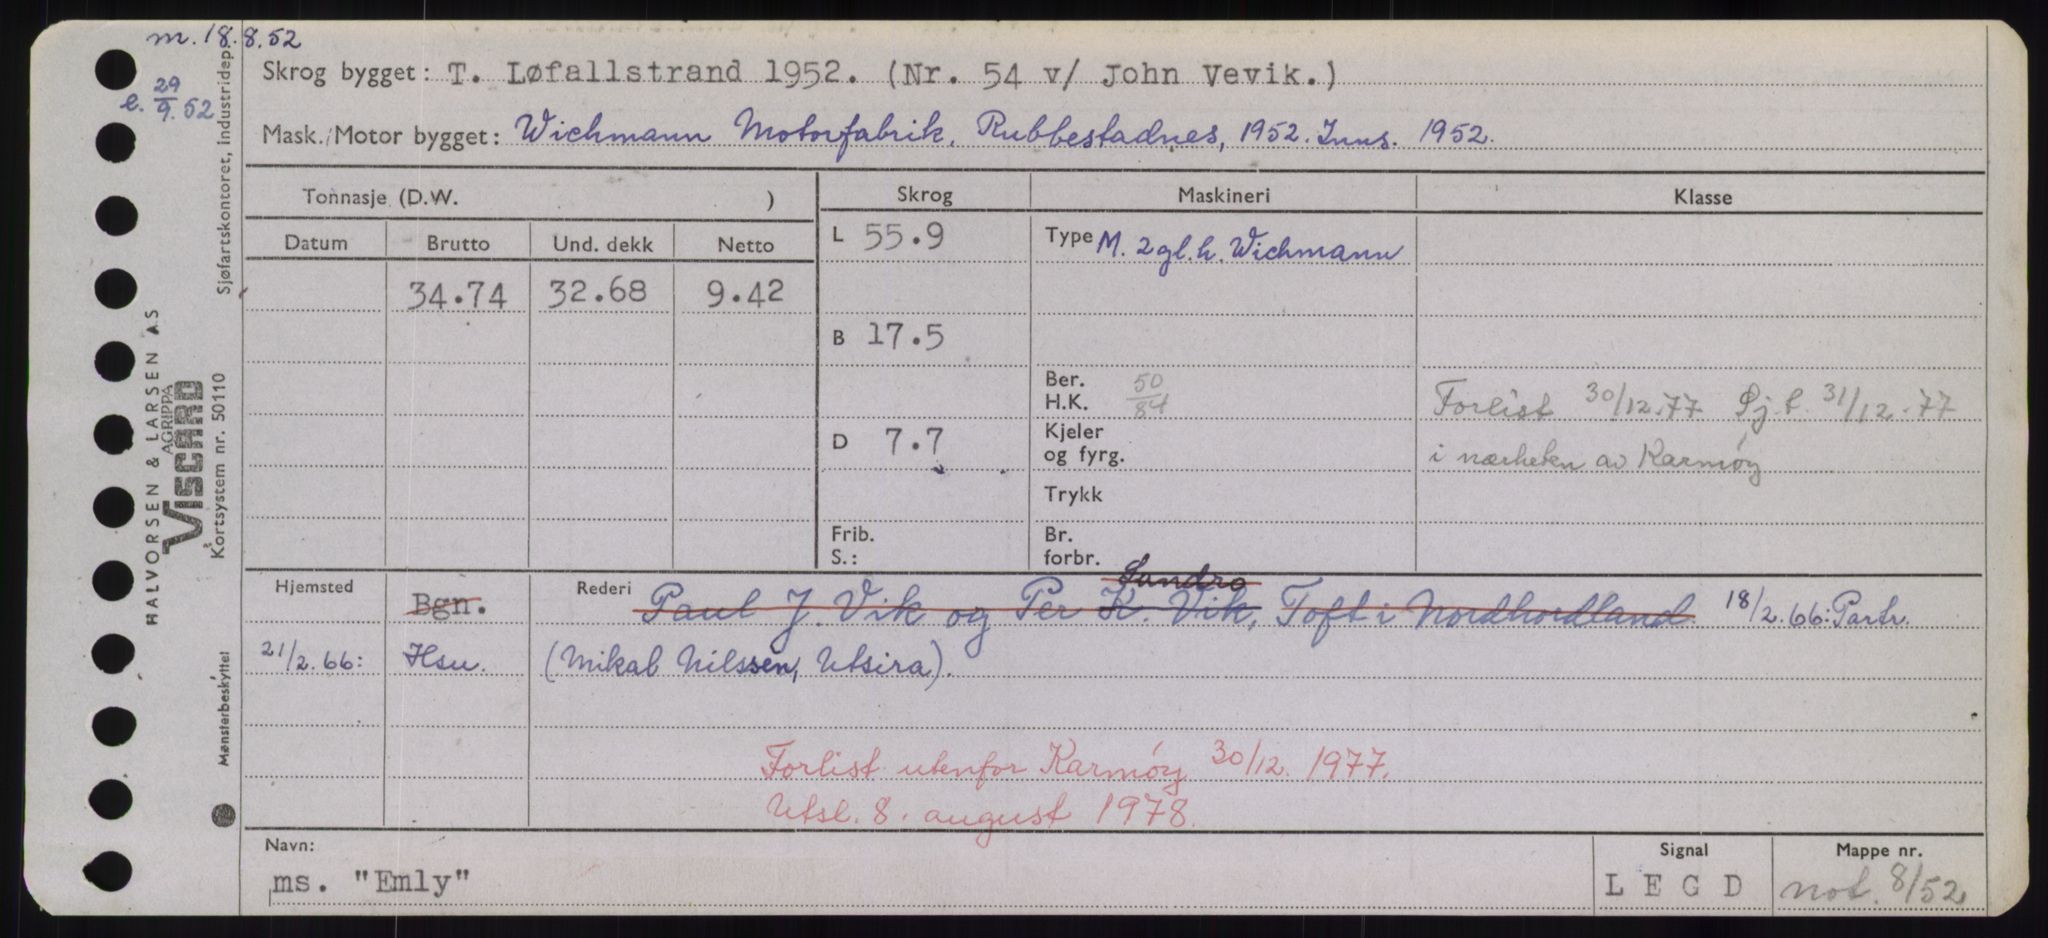 m. 18.8.52
e. 29/9.52
Skrog bygget: T. Løfallstrand 1952. (Nr. 54 v/ John Vevik.)
Mask./Motor bygget: Wichmann Motorfabrik, Rubbestadnes, 1952. Inns. 1952.
Tonnasje (D.W. )
Skrog
Maskineri
Klasse
Datum Brutto Und. dekk Netto
34.74 32.68 9.42
L 55.9
B 17.5
D 7.7
Frib.
S.:
Type M. 2 gl.h. Wichmann
Ber.
H.K. 50/84
Kjeler
og fyrg.
Trykk
Br.
forbr.
Forlist 30/12.77 Sj.f. 31/12.77
i nærheten av Karmøy
Hjemsted Bgn. Rederi Paul J. Vik og Per K. Vik, Toft i Nordhordland 18/2.66: Partr.
Sandro
21/2.66: Hsu. (Mikal Nilssen, Utsira).
Forlist utenfor Karmøy 30/12. 1977.
Utsl. 8. august 1978.
Navn:
ms. "Emly"
Signal
L E G D
Mappe nr.
not. 8/52
HALVORSEN & LARSEN A.S
AGRIPPA
VISCARD
Kortsystem nr. 50110
Sjøfartskontoret, Industridep.
Mønsterbeskyttet